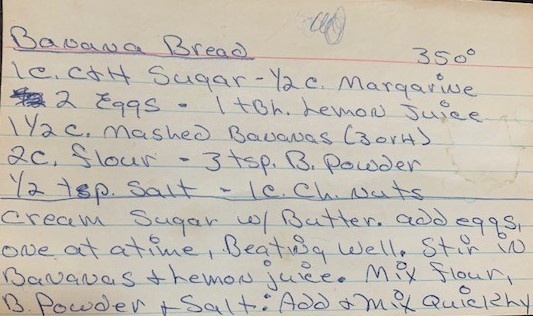 Banana Bread 350°
1 c. C+H Sugar - 1/2 c. Margarine
2 Eggs - 1 tbh. Lemon Juice
1 1/2 c. Mashed Bananas (3 or 4)
2 c. flour - 3 tsp. B. Powder
1/2 tsp. Salt - 1 c. Ch. nuts
Cream Sugar w/ Butter. add eggs,
one at a time, Beating well. Stir in
Bananas + Lemon juice. Mix flour,
B. Powder + Salt. Add + mix Quickly